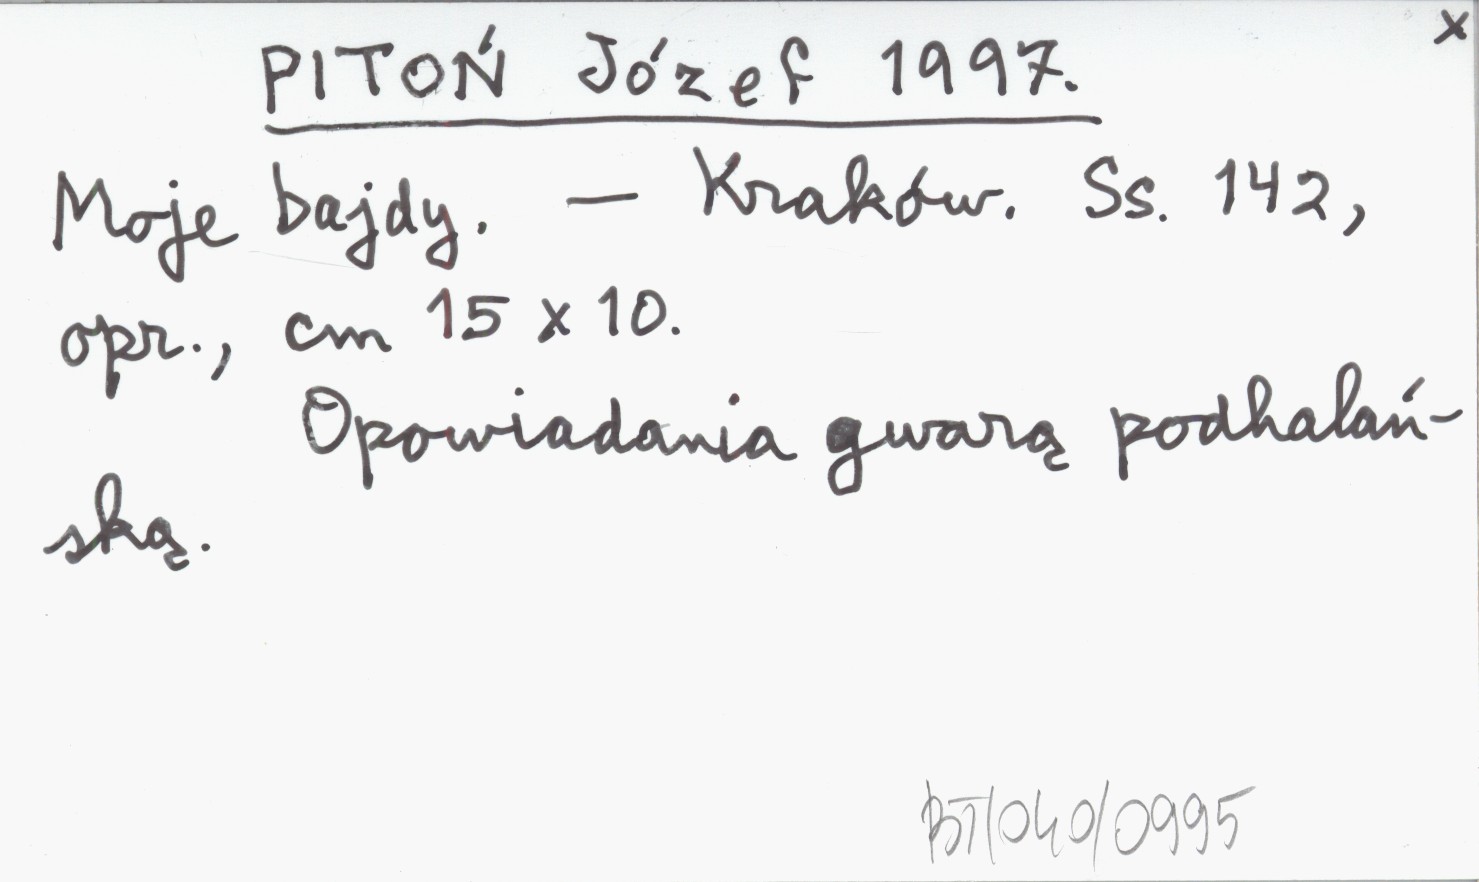 x
PITOŃ Józef 1997.
Moje bajdy. — Kraków. Ss. 142,
opr., cm 15 x 10.
Opowiadania gwarą podhalań-
ską.
BT/040/0995